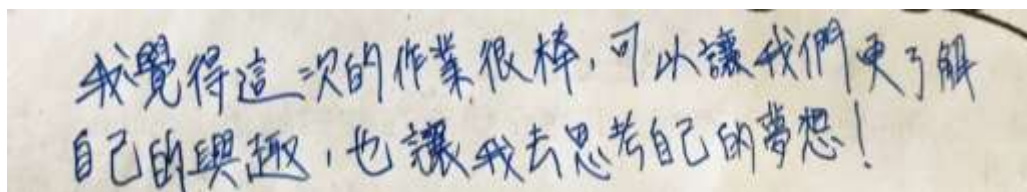 我覺得這一次的作業很棒，可以讓我們更了解
自己的興趣，也讓我去思考自己的夢想！